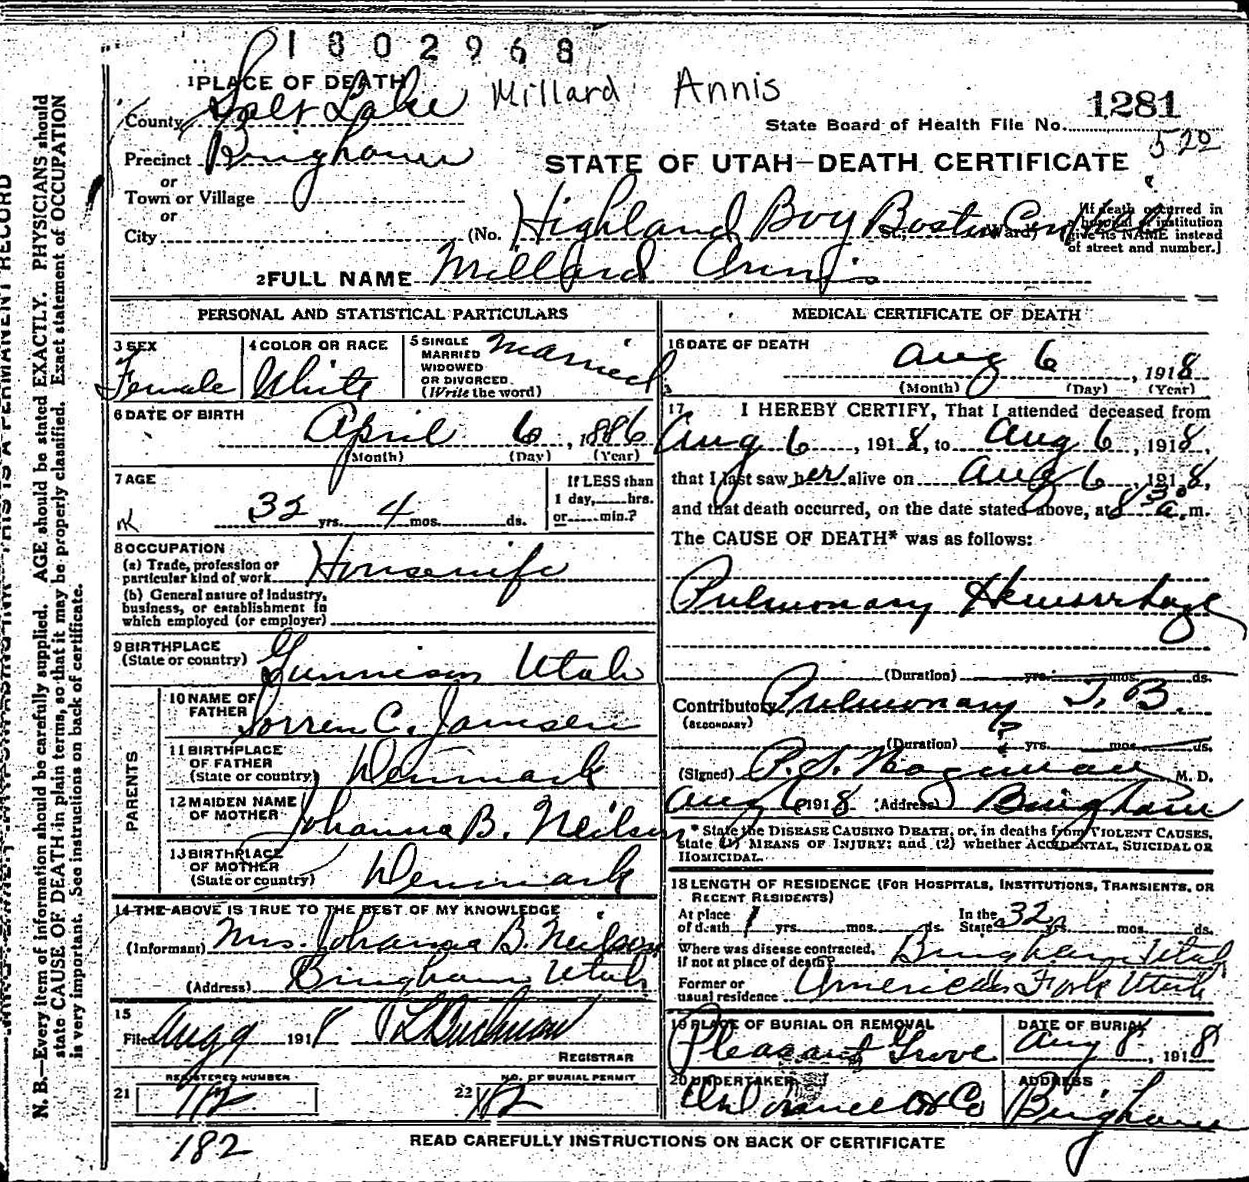 1802968
1 PLACE OF DEATH Millard Annis
County Salt Lake 1281
State Board of Health File No.
Precinct Bingham 520
or STATE OF UTAH—DEATH CERTIFICATE
Town or Village
or
City (No. Highland Boy Boston Con St., Ward)
[If death occurred in
hospital or institution
give its NAME instead
of street and number.]
2 FULL NAME Millard Annis
PERSONAL AND STATISTICAL PARTICULARS
3 SEX Female
4 COLOR OR RACE White
5 SINGLE
MARRIED
WIDOWED
OR DIVORCED
(Write the word) Married
6 DATE OF BIRTH
April 6, 1886
(Month) (Day) (Year)
7 AGE
32 yrs. 4 mos. ds.
If LESS than
1 day, hrs.
or min.?
8 OCCUPATION
(a) Trade, profession or
particular kind of work Housewife
(b) General nature of industry,
business, or establishment in
which employed (or employer)
9 BIRTHPLACE
(State or country) Gunnison Utah
PARENTS
10 NAME OF
FATHER Sorren C. Jamsen
11 BIRTHPLACE
OF FATHER
(State or country) Denmark
12 MAIDEN NAME
OF MOTHER Johanna B. Neilsen
13 BIRTHPLACE
OF MOTHER
(State or country) Denmark
14 THE ABOVE IS TRUE TO THE BEST OF MY KNOWLEDGE
(Informant) Mrs. Johanna B. Neilsen
(Address) Bingham Utah
15
Filed Aug 9 1918
REGISTRAR
REGISTERED NUMBER
21
NO. OF BURIAL PERMIT
22 182
182
MEDICAL CERTIFICATE OF DEATH
16 DATE OF DEATH
Aug 6, 1918
(Month) (Day) (Year)
17 I HEREBY CERTIFY, That I attended deceased from
Aug 6, 1918, to Aug 6, 1918,
that I last saw her alive on Aug 6, 1918,
and that death occurred, on the date stated above, at 8 30 a.m.
The CAUSE OF DEATH* was as follows:
Pulmonary Hemorrhage
(Duration) yrs. mos. ds.
Contributory Pulmonary T. B.
(SECONDARY)
(Duration) ? yrs. mos. ds.
(Signed) M. D.
Aug 6 1918 (Address) Bingham
* State the DISEASE CAUSING DEATH, or, in deaths from VIOLENT CAUSES,
state (1) MEANS OF INJURY; and (2) whether ACCIDENTAL, SUICIDAL OR
HOMICIDAL.
18 LENGTH OF RESIDENCE (FOR HOSPITALS, INSTITUTIONS, TRANSIENTS, OR
RECENT RESIDENTS)
At place
of death 1 yrs. mos. ds.
In the
State 32 yrs. mos. ds.
Where was disease contracted,
if not at place of death? Bingham Utah
Former or
usual residence American Fork Utah
19 PLACE OF BURIAL OR REMOVAL
Pleasant Grove
DATE OF BURIAL
Aug 8, 1918
20 UNDERTAKER
ADDRESS
Bingham
READ CAREFULLY INSTRUCTIONS ON BACK OF CERTIFICATE
N. B.—Every item of information should be carefully supplied. AGE should be stated EXACTLY. PHYSICIANS should
state CAUSE OF DEATH in plain terms, so that it may be properly classified. Exact statement of OCCUPATION
is very important. See instructions on back of certificate.
THIS IS A PERMANENT RECORD